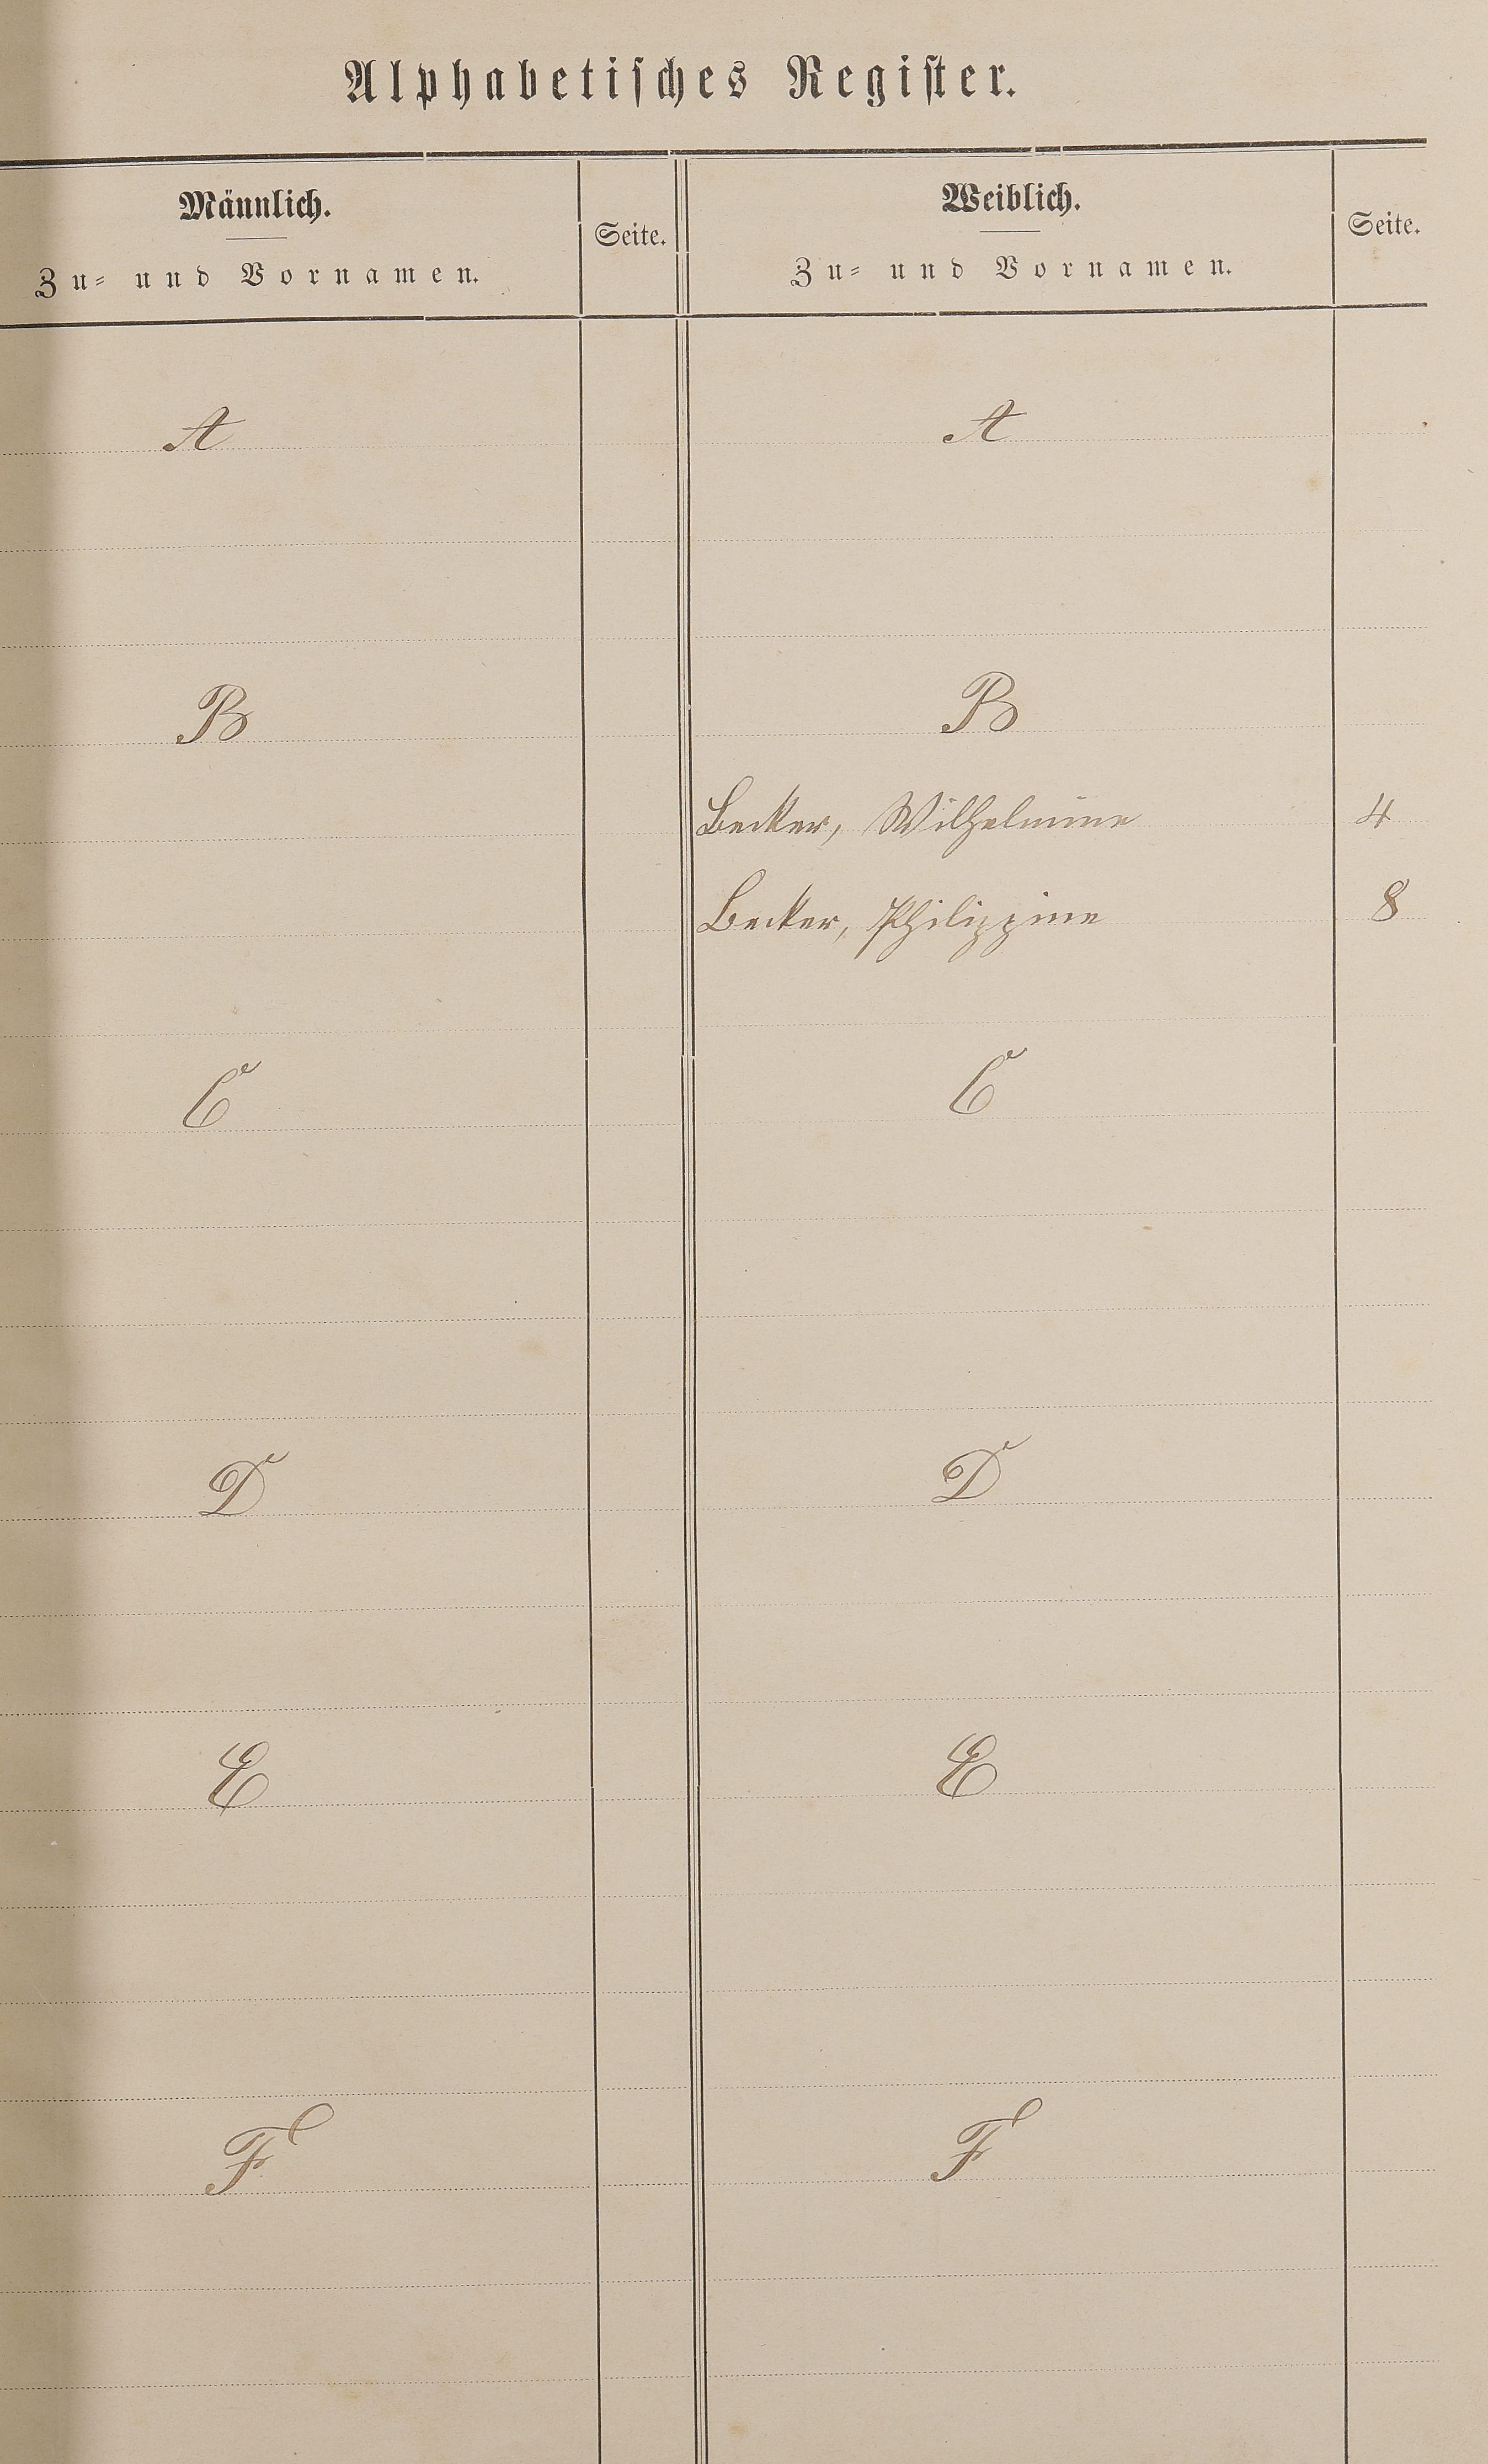 Alphabetisches Register.
Männlich.
Zu- und Vornamen.
Seite.
Weiblich.
Zu- und Vornamen.
Seite.
A
A
B
B
Becker, Wilhelmine 4
Becker, Philippine 8
C
C
D
D
E
E
F
F